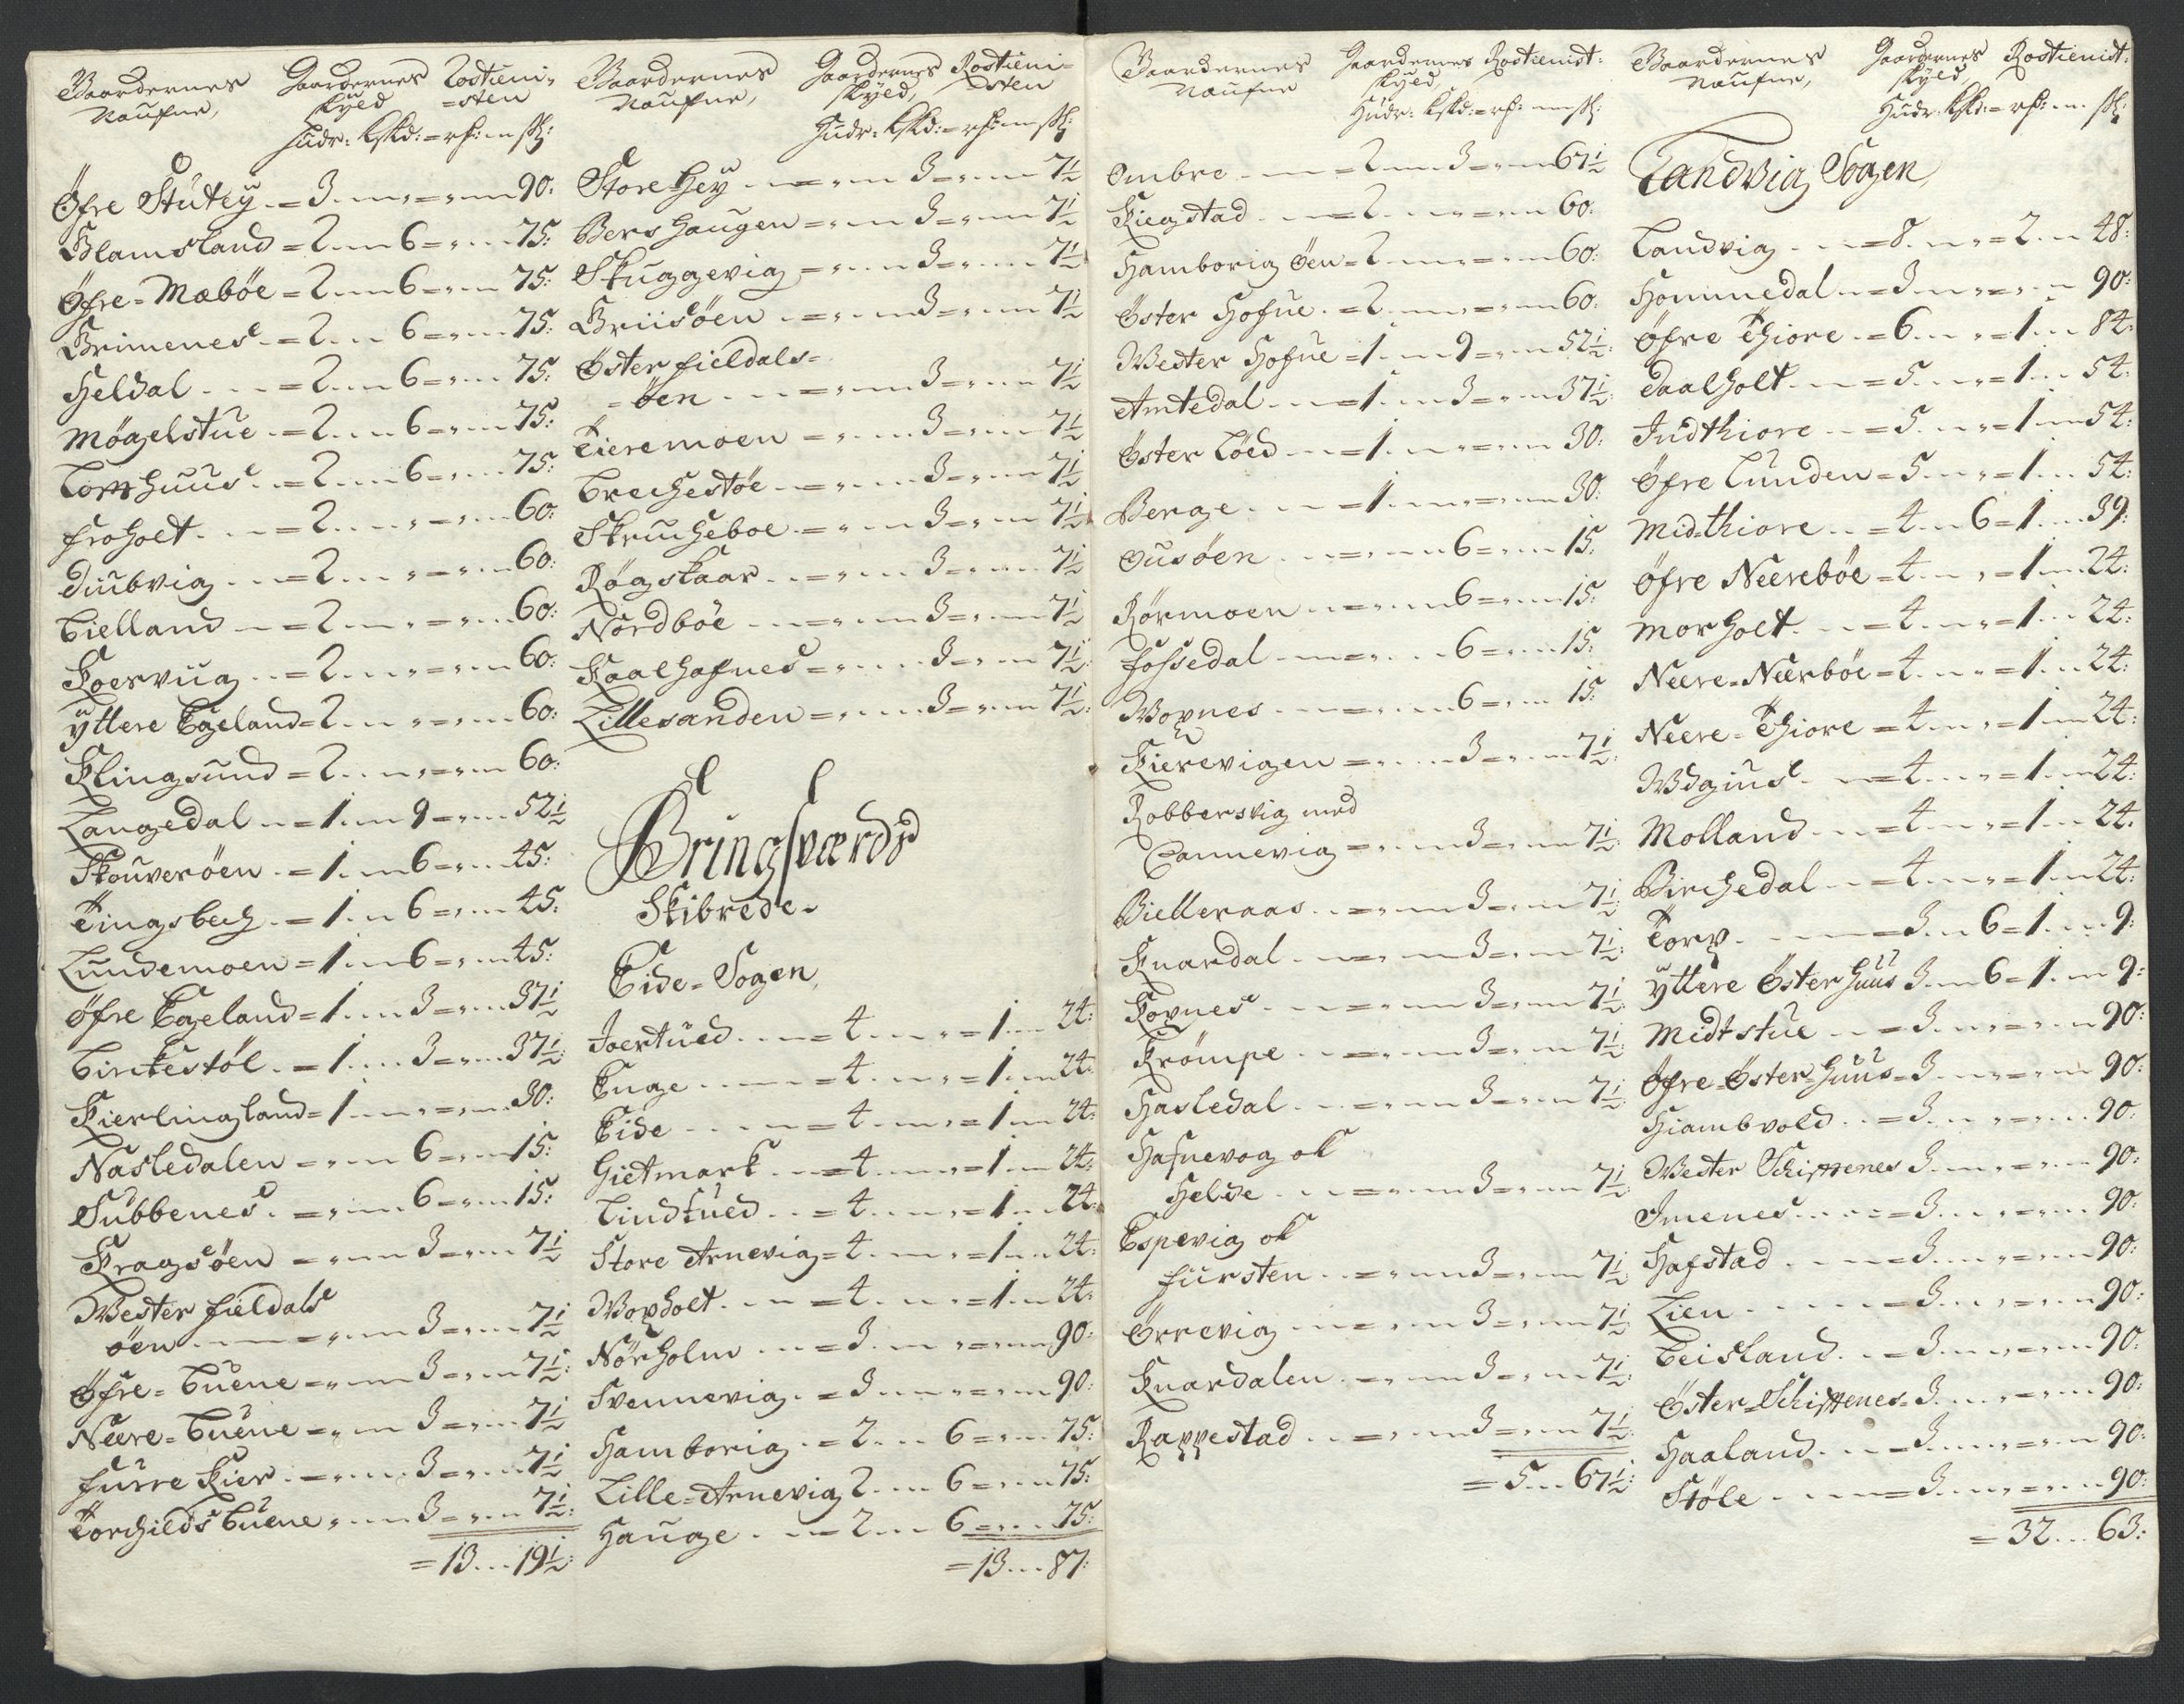 Gaardernes Gaardernes Rostieni-
Naufne, skyed =sten
Hudr: Lſkd: = rſ: ſh:
Øfre Stutey = 3 = 90:
Glamsland = 2 6 = 75:
Øfre-Mæbøe = 2 6 = 75:
Grimenes = 2 6 = 75:
Heldal = 2 6 = 75:
Møgelstue = 2 6 = 75:
Lomhuus = 2 6 = 75:
Froholt = 2 = 60:
Diubvig = 2 = 60:
Bielland = 2 = 60:
Koersviig = 2 = 60:
Yttere Egeland = 2 = 60:
Klingsund = 2 = 60:
Langedal = 1 9 = 52½
Skouverøen = 1 6 = 45:
Tingsbech = 1 6 = 45:
Lundemoen = 1 6 = 45:
Øfre Egeland = 1 3 = 37½
Birckestøl = 1 3 = 37½
Kierlingland = 1 = 30:
Nasledalen = 6 = 15:
Tubbenes = 6 = 15:
Kragsøen = 3 = 7½
Wester Fieldals
øen = 3 = 7½
Øfre-Buene = 3 = 7½:
Neere-Buene = 3 = 7½
Furre Kier = 3 = 7½
Torchilds Buene 3 = 7½:
= 13 19½:
Gaardernes Gaardernes Rostieni=
Naufne, skyed, =sten
Hudr: Lſkd: = rſ: ſh:
Store Hey = 3 = 7½
Bershaugen = 3 = 7½
Skuggevig = 3 = 7½
Griisøen = 3 = 7½
Øster Fieldals=
=øen = 3 = 7½
Tieremoen = 3 = 7½
Brechestøe = 3 = 7½
Skruheboe = 3 = 7½
Røgskaar = 3 = 7½
Nordbøe = 3 = 7½
Kaalhafnes = 3 = 7½
Lillesanden = 3 = 7½:
Bringsværds
Skibrede
Eide-Sogen,
Joertued = 4 = 1 24:
Enge = 4 = 1 24:
Eide = 4 = 1 24:
Gietmark = 4 = 1 24:
Lindtued = 4 = 1 24:
Store Arnevig = 4 = 1 24:
Woxholt = 4 = 1 24:
Nørholm = 3 = 90:
Svennevig = 3 = 90:
Hamborig = 2 6 = 75:
Lille-Arnevig 2 6 = 75:
Hauge = 2 6 = 75:
= 13 87:
Gaardernes Gaardernes Rostienist:
Naufne skyed,
Hudr: Lſkd: = rſ: ſh:
Ombre = 2 3 = 67½
Kiegstad = 2 = 60:
Hamborig Øen = 2 = 60:
Øster Hofue = 2 = 60:
Wester Hofue = 1 9 = 52½:
Amtedal = 1 3 = 37½:
Øster Løed = 1 = 30:
Berge = 1 = 30:
Ousøen = 6 = 15:
Rørmoen = 6 = 15:
Fossedal = 6 = 15:
Woxnes = 6 = 15:
Kierevigen = 3 = 7½:
Robbersvig med
Cannevig = 3 = 7½:
Bielleraas = 3 = 7½:
Knardal = 3 = 7½:
Foxnes = 3 = 7½:
Krømpe = 3 = 7½:
Hasledal = 3 = 7½:
Hafnevog ok
Helde = 3 = 7½
Espevig ok
Fursten = 3 = 7½
Ørrevig = 3 = 7½
Knardalen = 3 = 7½:
Rappestad = 3 = 7½:
= 5 67½:
Gaardernes Gaardernes Rostienist:
Naufne, skyed,
Hudr: Lſkd: = rſ: ſh:
Landvig Sogen,
Landvig = 8 = 2 48:
Hommedal = 3 = 90:
Øfre Thiore = 6 = 1 84:
Daalholt = 5 = 1 54:
Indthiore = 5 = 1 54:
Øfre Lunden = 5 = 1 54:
Midthiore = 4 6 = 1 39:
Øfre Neerebøe = 4 = 1 24:
Morholt = 4 = 1 24:
Neere-Neerbøe = 4 = 1 24:
Neere-Thiore = 4 = 1 24:
Wdgius = 4 = 1 24:
Molland = 4 = 1 24:
Birchedal = 4 = 1 24:
Torp = 3 6 = 1 9:
Yttere Østerhuus 3 6 = 1 9:
Midtstue = 3 = 90:
Øfre-Øster-Huus = 3 = 90:
Hiambvold = 3 = 90:
Wester Schiftenes 3 = 90:
Imenes = 3 = 90:
Hafstad = 3 = 90:
Lien = 3 = 90:
Beisland = 3 = 90:
Øster-Schiftenes = 3 = 90:
Haaland = 3 = 90:
Støle = 3 = 90:
= 32 63: